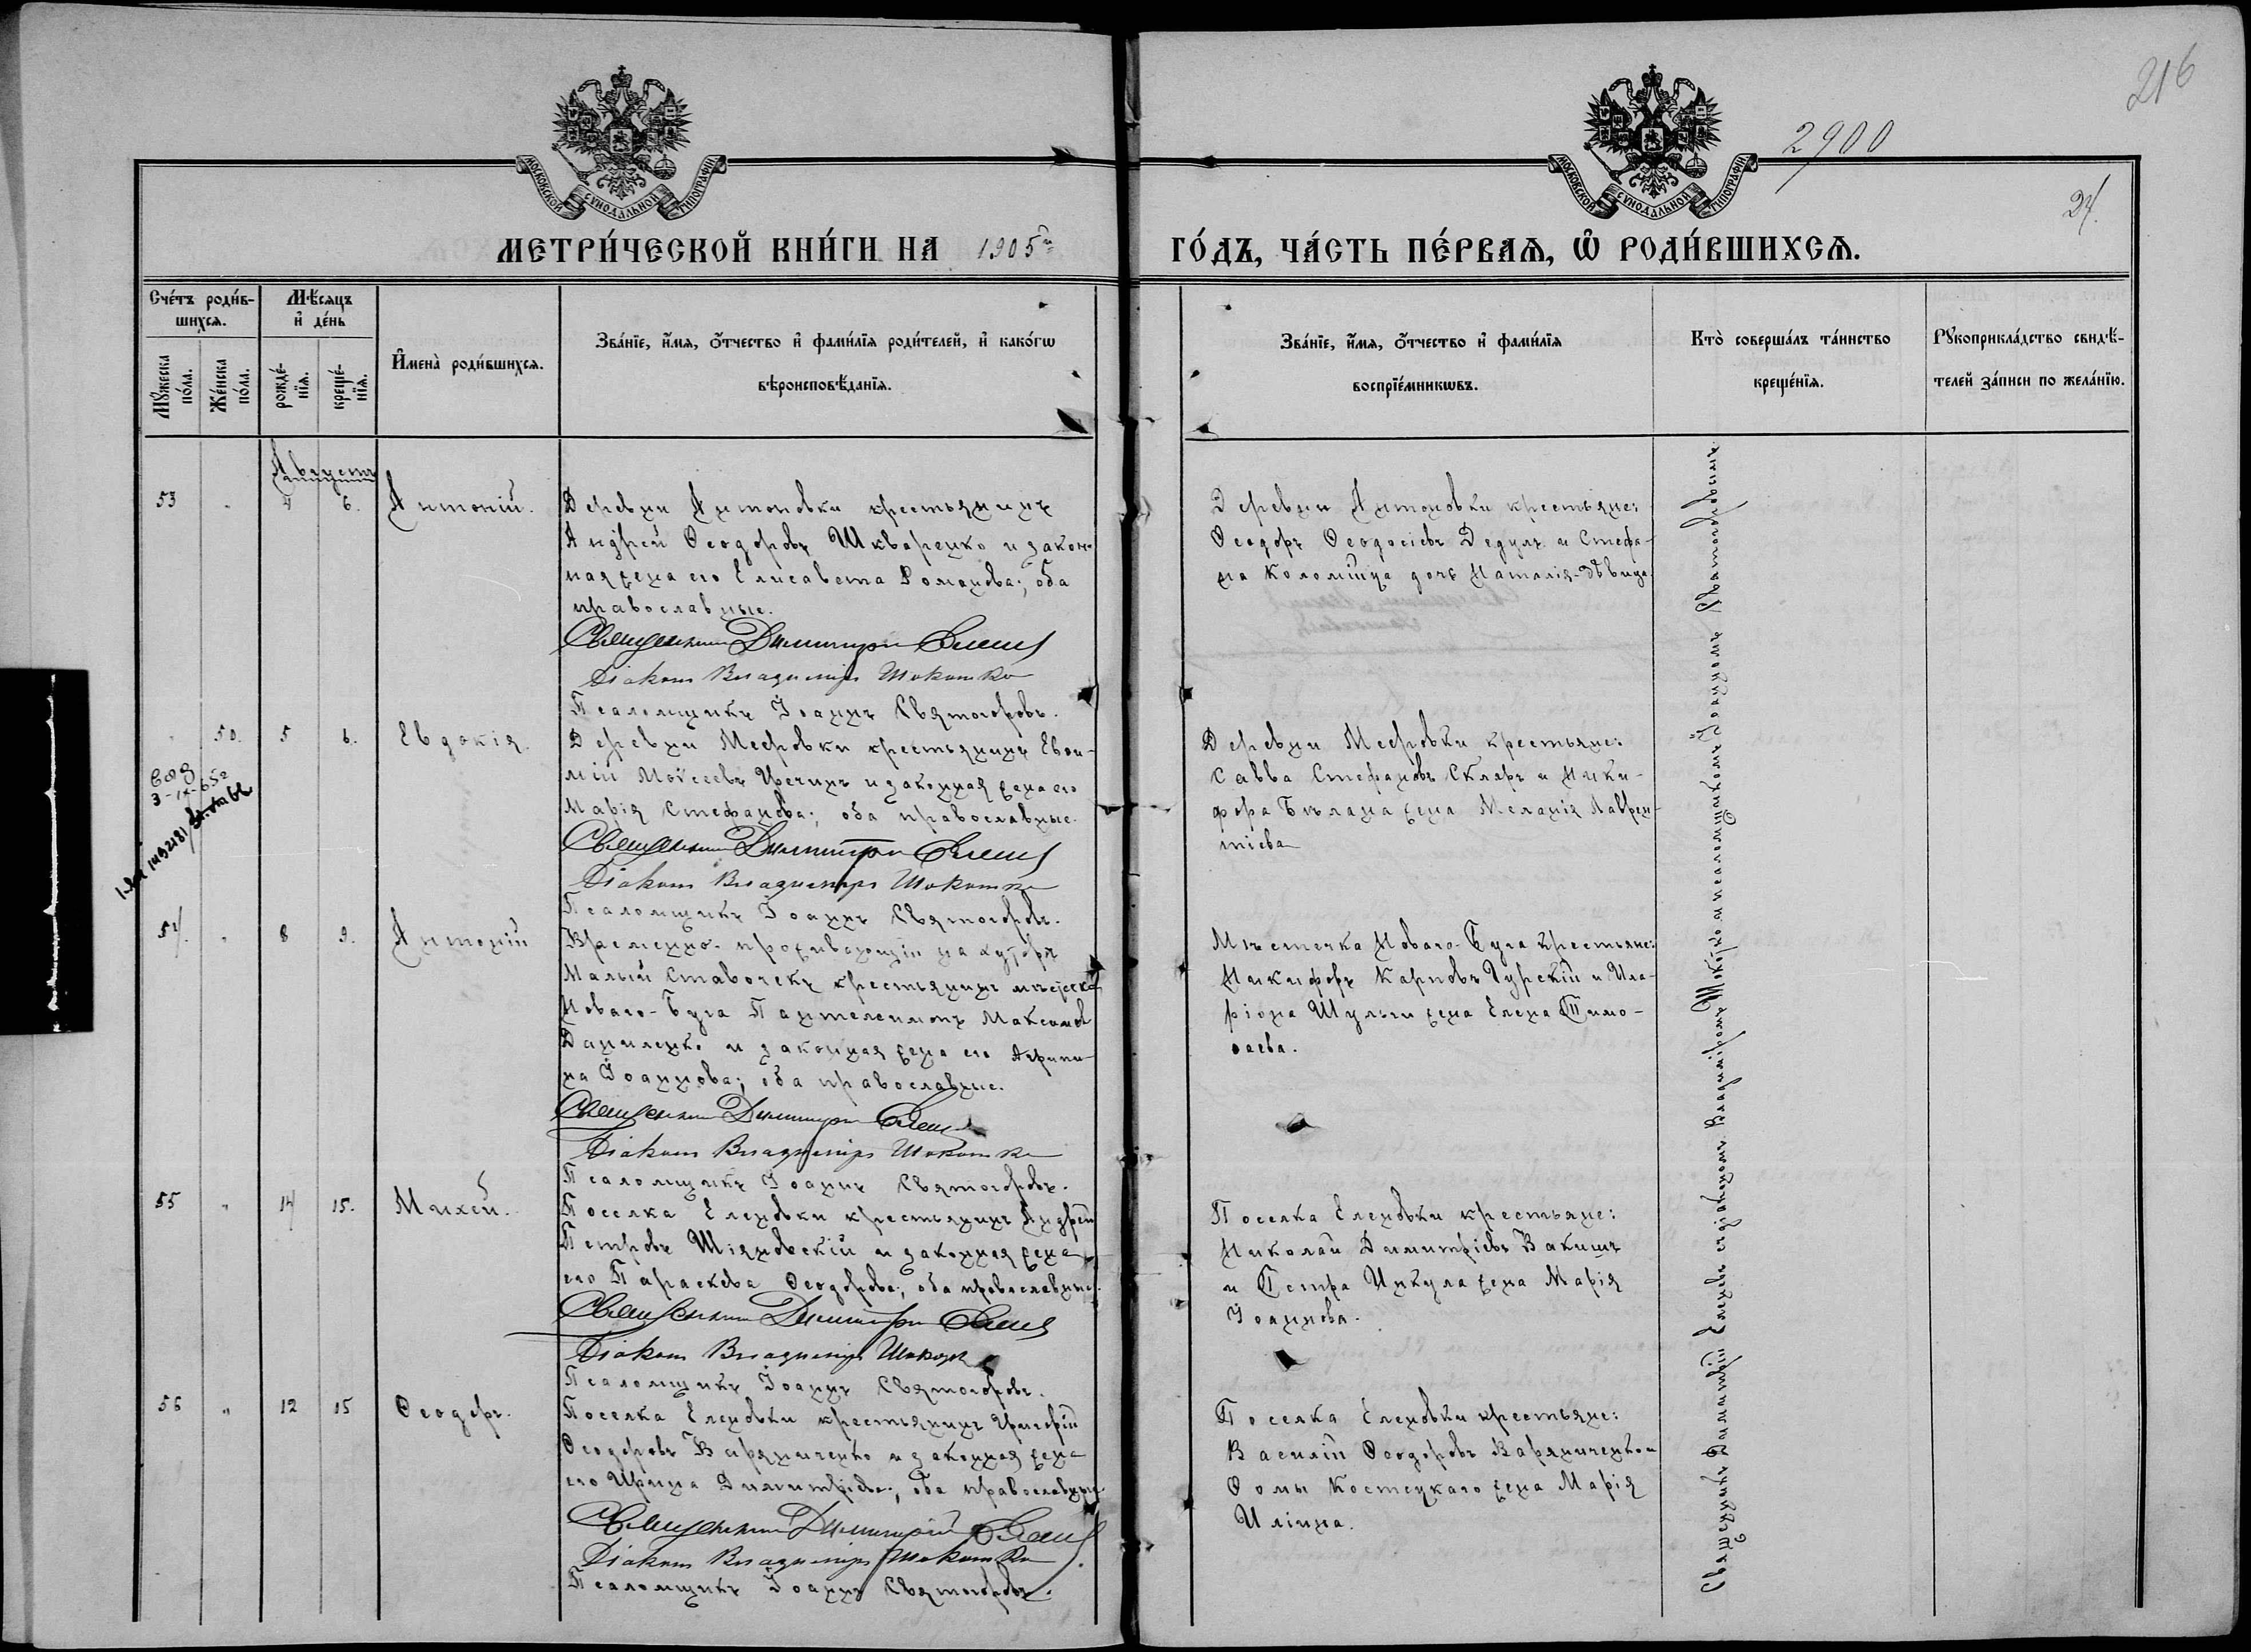 216
2900
24.
МОСКОВСКОЙ СѴНОДАЛЬНОЙ ТИПОГРАФІИ
МОСКОВСКОЙ СѴНОДАЛЬНОЙ ТИПОГРАФІИ
МЕТРИ́ЧЕСКОЙ КНИ́ГИ НА 1905й ГО́ДЪ, ЧА́СТЬ ПЕ́РВАѦ, Ѡ҆ РОДИ́ВШИХСѦ.
Сче́тъ роди́в-
шихсѧ.
Мꙋ́жеска по́ла.
Же́нска по́ла.
Мѣ́сѧцъ
и҆ де́нь
рожде́-
нїѧ.
креще́-
нїѧ.
И҆мена̀ роди́вшихсѧ.
Зва́нїе, и҆́мѧ, о҆́тчество и҆ фами́лїѧ роди́телей, и҆ како́гѡ
вѣроисповѣ́данїѧ.
Зва́нїе, и҆́мѧ, о҆́тчество и҆ фами́лїѧ
воспрїе́мникѡвъ.
Кто̀ соверша́лъ та́инство
креще́нїѧ.
Рꙋкоприкла́дство свидѣ́-
телей за́писи по жела́нїю.
Августъ
53 " 4 6. Антоній.
Деревни Антоновки крестьянинъ
Андрей Ѳеодоровъ Шкваренко и закон-
ная жена его Елисавета Романова; оба
православные.
Священникъ Димитрій Еленевъ
Діаконъ Владиміръ Шокотко
Псаломщикъ Іоаннъ Святогоровъ.
Деревни Антоновки крестьяне:
Ѳеодоръ Ѳеодосіевъ Дедулъ и Стефа-
на Коломійца дочь Наталія-дѣвица.
" 50. 5 6. Евдокія.
Деревни Меѳровки крестьянинъ Евѳи-
мій Моѵсеевъ и законная жена его
Марія Стефанова; оба православные.
Священникъ Димитрій Еленевъ
Діаконъ Владиміръ Шокотко
Псаломщикъ Іоаннъ Святогоровъ.
Деревни Меѳровки крестьяне:
Савва Стефановъ Скляръ и Ники-
фора Бѣлана жена Меланія Лаврен-
тіева
54. " 8 9. Антоній
Временно-проживающій на хуторѣ
Малый Ставочекъ крестьянинъ мѣстечка
Новаго-Буга Пантелеимонъ Максимовъ
Даниленко и законная жена его Агрипи-
на Іоаннова; оба православные.
Священникъ Димитрій Еленевъ
Діаконъ Владиміръ Шокотко
Псаломщикъ Іоаннъ Святогоровъ.
Мѣстечка Новаго-Буга крестьяне:
Никифоръ Карповъ Гурскій и Ила-
ріона Шульги жена Елена Тимо-
ѳеева.
55 " 14 15. Михей.
Поселка Еленовки крестьянинъ Андрей
Петровъ Шіяновскій и законная жена
его Параскева Ѳеодорова; оба православные.
Священникъ Димитрій Еленевъ
Діаконъ Владиміръ Шокотко
Псаломщикъ Іоаннъ Святогоровъ.
Поселка Еленовки крестьяне:
Николай Димитріевъ Вакишъ
и Петра Цикула жена Марія
Іоаннова.
56 " 12 15 Ѳеодоръ.
Поселка Еленовки крестьянинъ Григорій
Ѳеодоровъ Варяниченко и законная жена
его Ирина Димитріева; оба православные
Священникъ Димитрій Еленевъ
Діаконъ Владиміръ Шокотко
Псаломщикъ Іоаннъ Святогоровъ.
Поселка Еленовки крестьяне:
Василій Ѳеодоровъ Варяниченко и
Ѳомы Костецкаго жена Марія
Иліина.
Священникъ Димитрій Еленевъ съ діакономъ Владиміромъ Шокотко и псаломщикомъ Іоанномъ Святогоровымъ.